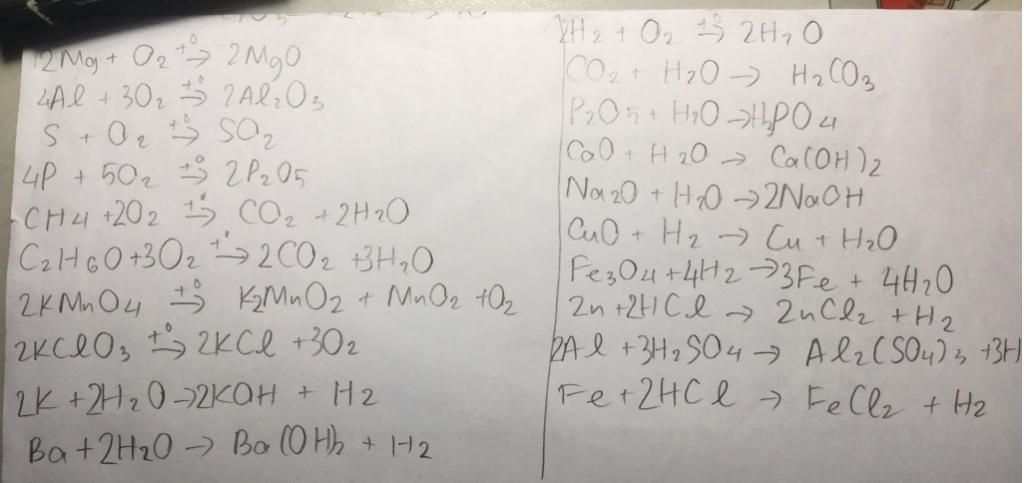 2Mg + O2 t0→ 2MgO
4Al + 3O2 t0→ 2Al2O3
S + O2 t0→ SO2
4P + 5O2 t0→ 2P2O5
CH4 +2O2 t0→ CO2 +2H2O
C2H6O+3O2 t0→ 2CO2 +3H2O
2KMnO4 t0→ K2MnO2 + MnO2 +O2
2KClO3 t0→ 2KCl +3O2
2K +2H2O→2KOH + H2
Ba+2H2O → Ba(OH)2 + H2
2H2 + O2 t0→ 2H2O
CO2 + H2O → H2CO3
P2O5 + H2O →H3PO4
CaO + H2O → Ca(OH)2
Na2O + H2O →2NaOH
CuO + H2 → Cu + H2O
Fe3O4 +4H2 →3Fe + 4H2O
Zn +2HCl → ZnCl2 + H2
2Al +3H2SO4→ Al2(SO4)3 +3H
Fe+2HCl → FeCl2 + H2